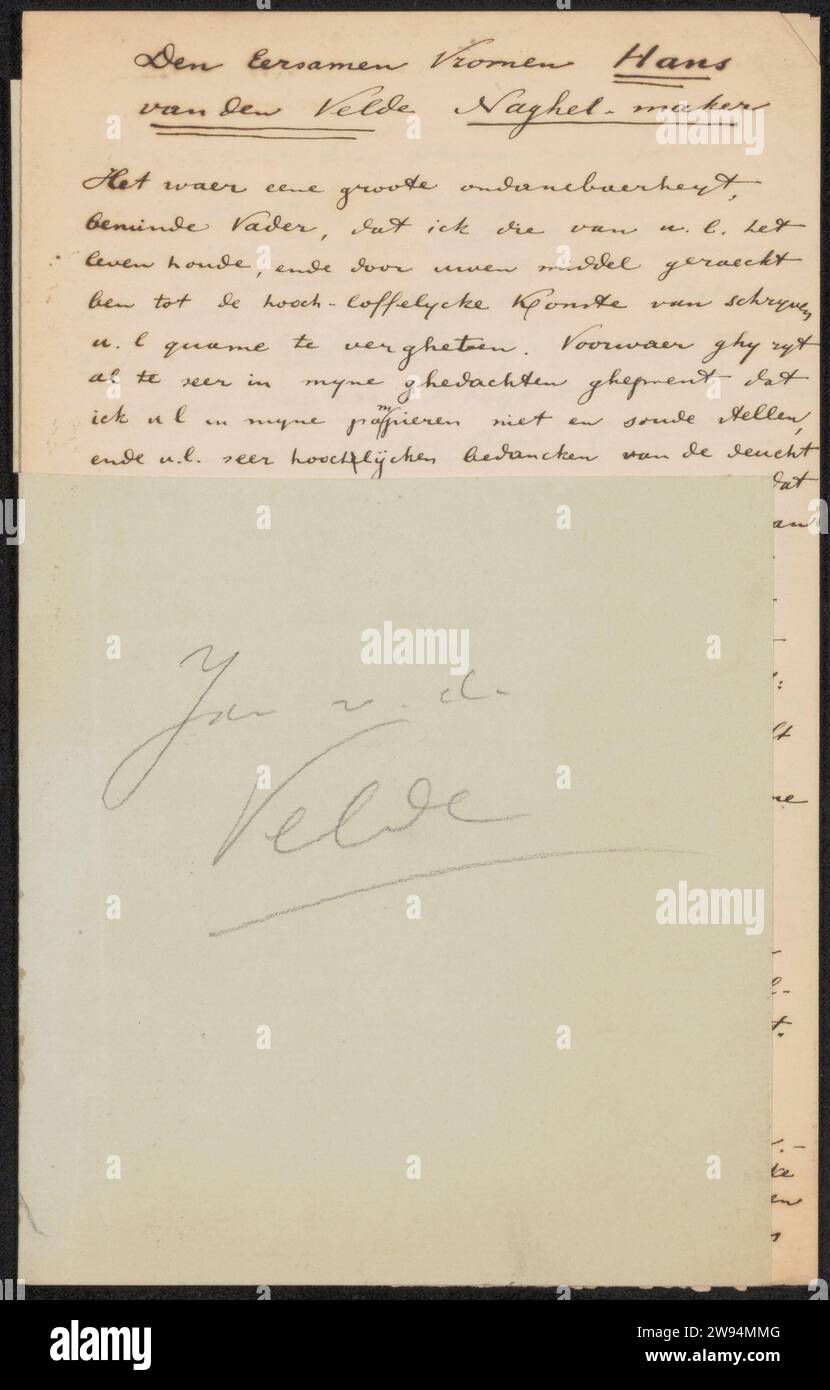 Den Eersamen Vromen Hans
van den Velde Naghel-maker
Het waer eene groote ondancbaerheyt,
beminde Vader, dat ick die van u. l. het
leven houde, ende door uwen middel geraeckt
ben tot de hooch-loffelycke Konste van schryven
u. l quame te vergheten. Voorwaer ghy zyt
al te seer in myne ghedachten gheprent dat
ick u l in myne pampieren niet en soude stellen,
ende u. l. seer hoochlijcken bedancken van de deucht
dat
an
lt
me
l-
t.
en
Jan v. d.
Velde
alamy
a
alamy
Image ID: 2W94MMG
www.alamy.com